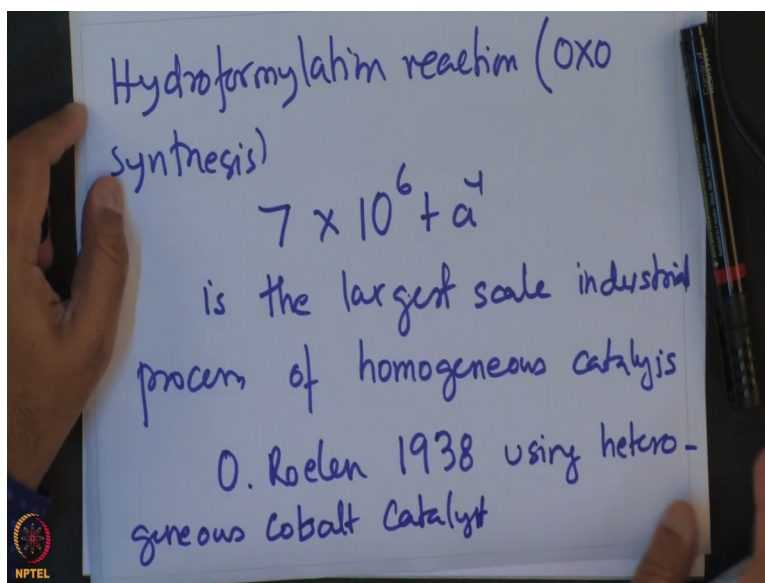 Hydroformylation reaction (oxo
synthesis)
7 × 10⁶ t a⁻¹
is the largest scale industrial
process of homogeneous catalyis
O. Roelen 1938 using hetero-
geneous cobalt catalyst
NPTEL